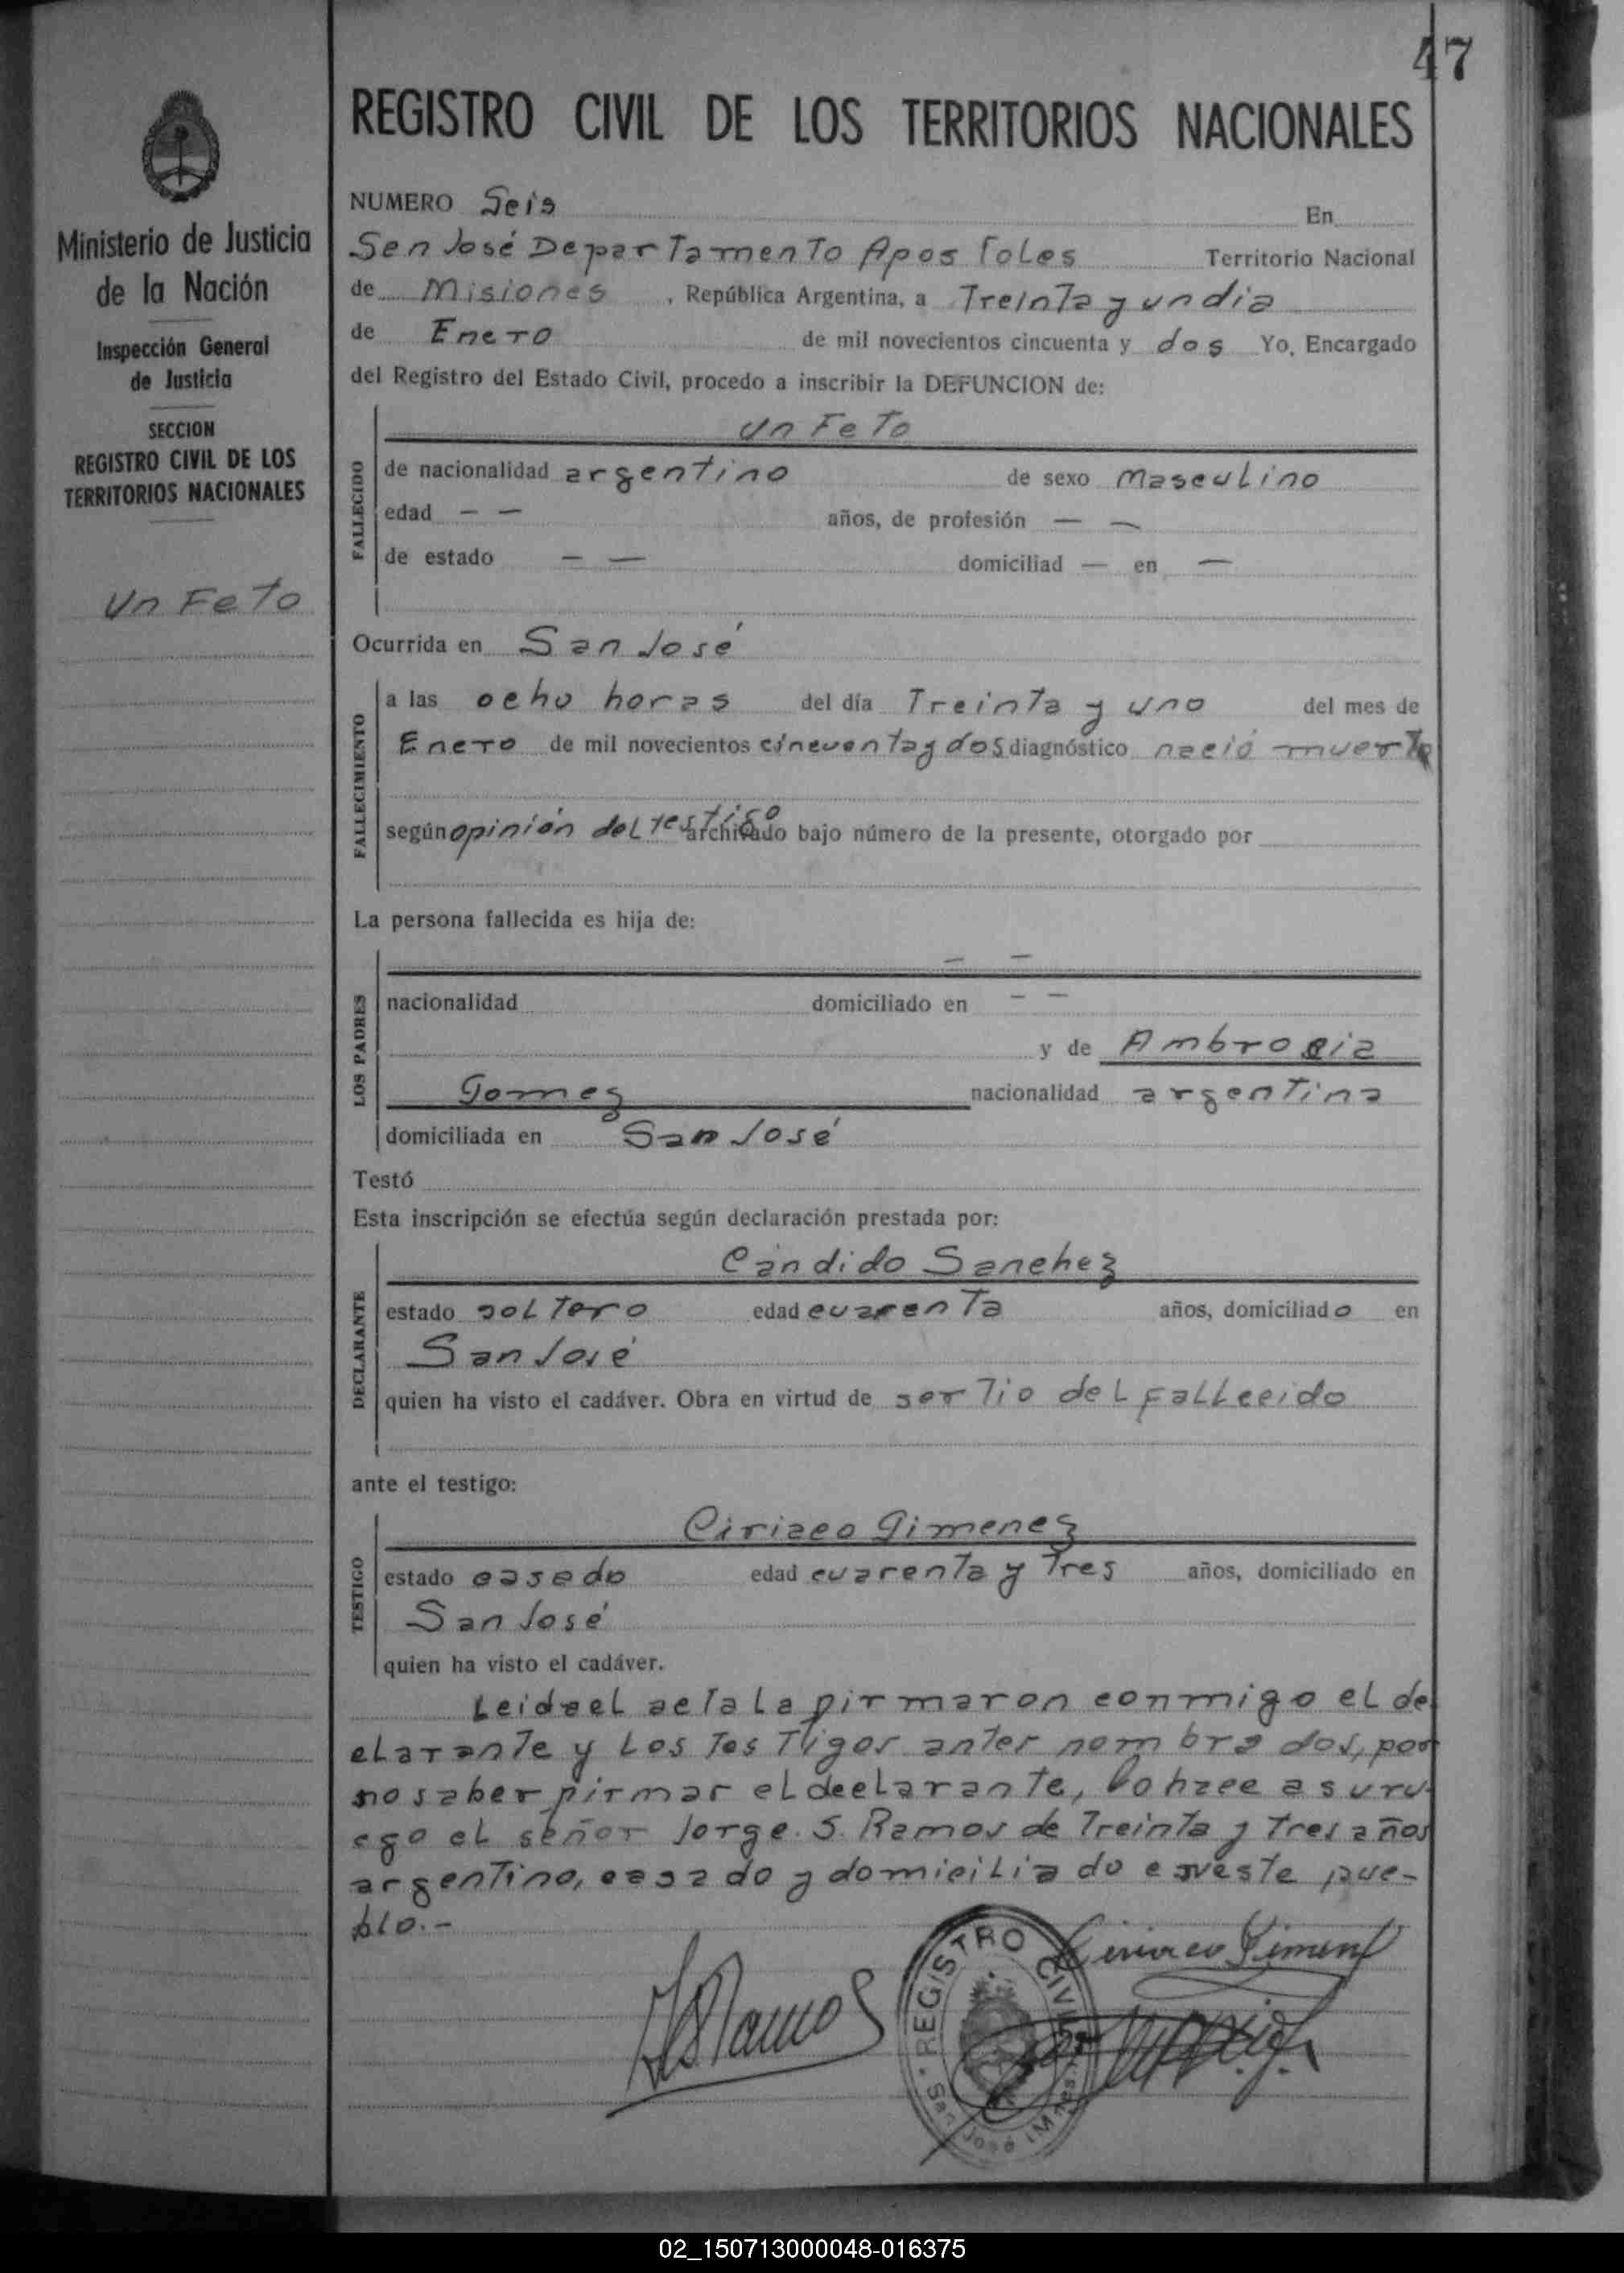 47
REGISTRO CIVIL DE LOS TERRITORIOS NACIONALES
Ministerio de Justicia
de la Nación
Inspección General
de Justicia
SECCION
REGISTRO CIVIL DE LOS
TERRITORIOS NACIONALES
Un Feto
NUMERO Seis En
San José Departamento Apostoles Territorio Nacional
de Misiones , República Argentina, a Treinta y un dia
de Enero de mil novecientos cincuenta y dos Yo, Encargado
del Registro del Estado Civil, procedo a inscribir la DEFUNCION de:
FALLECIDO
Un Feto
de nacionalidad argentino de sexo Masculino
edad — — años, de profesión — —
de estado — — domiciliad — en —
Ocurrida en San José
FALLECIMIENTO
a las ocho horas del día Treinta y uno del mes de
Enero de mil novecientos cincuenta y dos diagnóstico nació muerto
según opinión del testigo archivado bajo número de la presente, otorgado por
La persona fallecida es hija de:
LOS PADRES
— —
nacionalidad domiciliado en — —
y de Ambrocia
Gomez nacionalidad argentina
domiciliada en San José
Testó
Esta inscripción se efectúa según declaración prestada por:
DECLARANTE
Cándido Sanchez
estado soltero edad cuarenta años, domiciliado en
San José
quien ha visto el cadáver. Obra en virtud de ser Tio del fallecido
ante el testigo:
TESTIGO
Ciriaco Gimenez
estado casado edad cuarenta y Tres años, domiciliado en
San José
quien ha visto el cadáver.
Leida el acta la firmaron conmigo el de
clarante y los Testigos antes nombrados, por
no saber firmar el declarante, lo hace a su ru-
ego el señor Jorge. S. Ramos de Treinta y Tres años
argentino, casado y domiciliado en este pue-
blo.-
JSRamos
Ciriaco Gimenez
REGISTRO CIVIL
San José (Mnes.)
02_150713000048-016375